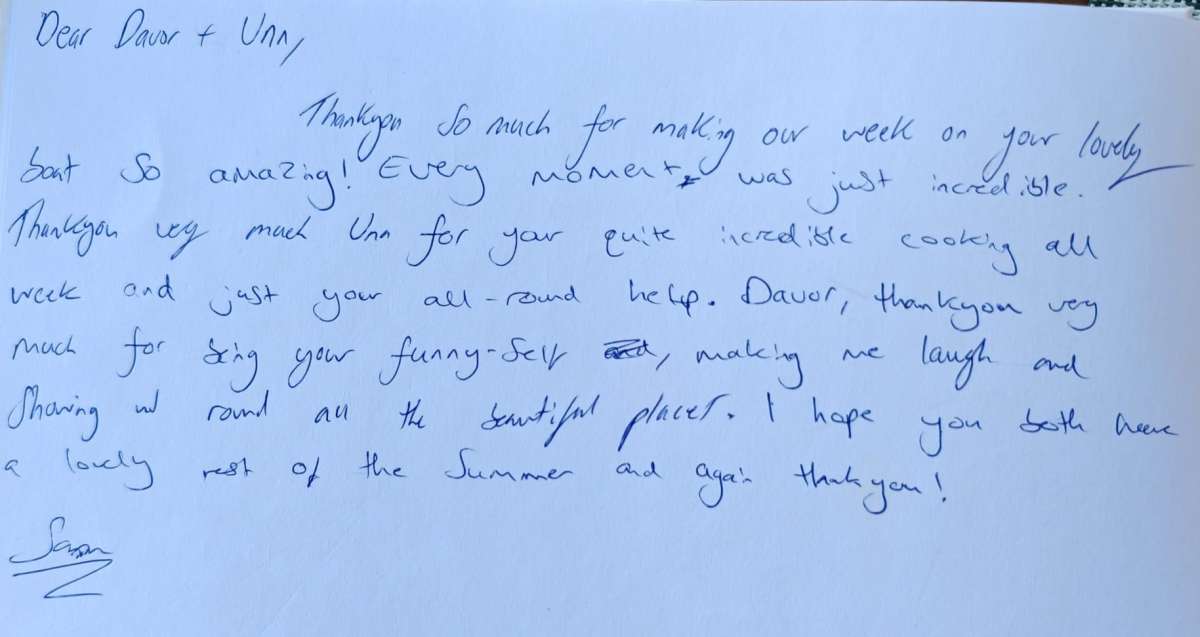 Dear Davor + Unn,
Thankyou so much for making our week on your lovely
boat so amazing! Every moment was just incredible.
Thankyou very much Unn for your quite incredible cooking all
week and just your all-round help. Davor, thankyou very
much for being your funny-self, making me laugh and
showing us round all the beautiful places. I hope you both have
a lovely rest of the summer and again thankyou!